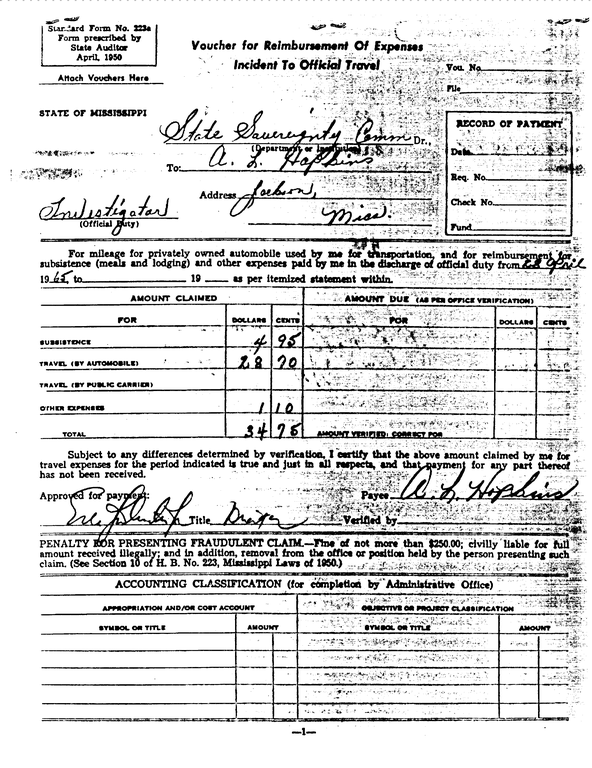 Standard Form No. 223a
Form prescribed by
State Auditor
April, 1950
Attach Vouchers Here
Voucher for Reimbursement Of Expenses
Incident To Official Travel
Vou. No.
File
STATE OF MISSISSIPPI
State Sovereignty Comm Dr.,
(Department or Institution)
To: A. L. Hopkins
Address Jackson,
Miss.
Investigator
(Official Duty)
RECORD OF PAYMENT
Date
Req. No.
Check No.
Fund
For mileage for privately owned automobile used by me for transportation, and for reimbursement for
subsistence (meals and lodging) and other expenses paid by me in the discharge of official duty from 28 April
1965, to 19 as per itemized statement within.
AMOUNT CLAIMED AMOUNT DUE (AS PER OFFICE VERIFICATION)
FOR DOLLARS CENTS FOR DOLLARS CENTS
SUBSISTENCE 4 95
TRAVEL (BY AUTOMOBILE) 28 70
TRAVEL (BY PUBLIC CARRIER)
OTHER EXPENSES 1 10
TOTAL 34 75 AMOUNT VERIFIED: CORRECT FOR
Subject to any differences determined by verification, I certify that the above amount claimed by me for
travel expenses for the period indicated is true and just in all respects, and that payment for any part thereof
has not been received.
Approved for payment: Payee A. L. Hopkins
Title Verified by
PENALTY FOR PRESENTING FRAUDULENT CLAIM.—Fine of not more than $250.00; civilly liable for full
amount received illegally; and in addition, removal from the office or position held by the person presenting such
claim. (See Section 10 of H. B. No. 223, Mississippi Laws of 1950.)
ACCOUNTING CLASSIFICATION (for completion by Administrative Office)
APPROPRIATION AND/OR COST ACCOUNT OBJECTIVE OR PROJECT CLASSIFICATION
SYMBOL OR TITLE AMOUNT SYMBOL OR TITLE AMOUNT
—1—